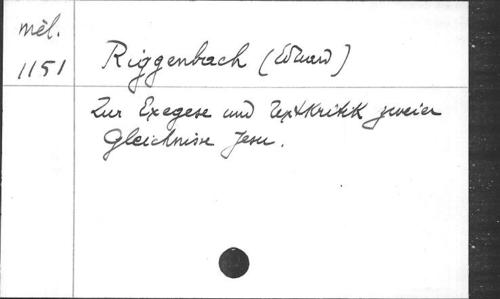 mél.
1151
Riggenbach (Eduard)
Zur Exegese und Textkritik zweier
Gleichnisse Jesu.